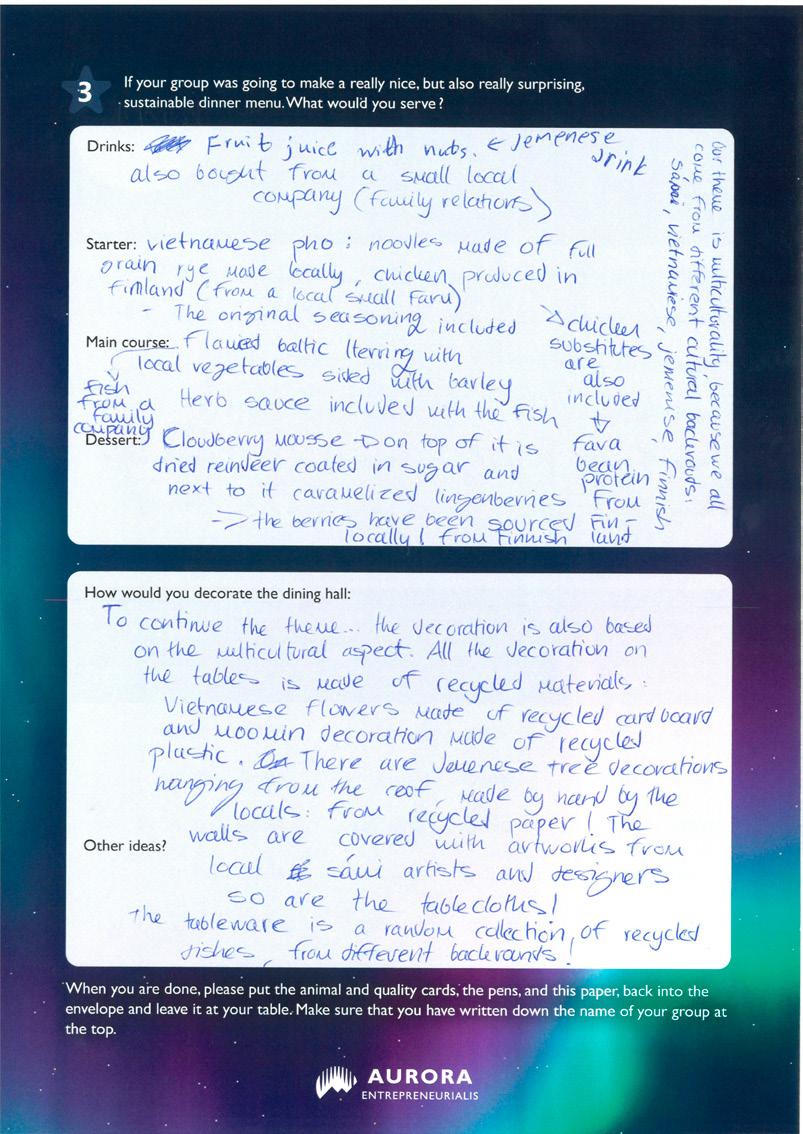 3
If your group was going to make a really nice, but also really surprising,
sustainable dinner menu. What would you serve?
Drinks: Fruit juice with nuts. ← Jemenese
drink
also bought from a small local
company (family relations)
Starter: vietnamese pho : noodles made of full
grain rye made locally, chicken produced in
finland (from a local small farm)
- The original seasoning included
→ chicken
substitutes
are
also
included
↓
fava
bean
protein
from
Fin-
land
Main course: flamed baltic Herring with
local vegetables sided with barley
Herb sauce included with the fish
↓
fish
from a
family
company
Dessert: Cloudberry mousse → on top of it is
dried reindeer coated in sugar and
next to it caramelized lingenberries
-> the berries have been sourced
locally! from Finnish
Our theme is multiculturality, because we all
come from different cultural backrounds:
sámi, vietnamese, jemenise, Finnish
How would you decorate the dining hall:
To continue the theme... the decoration is also based
on the multicultural aspect. All the decoration on
the tables is made of recycled materials:
Vietnamese flowers made of recycled cardboard
and moomin decoration made of recycled
plastic. There are Jemenese tree decorations
hanging from the roof, made by hand by the
locals: from recycled paper! The
Other ideas? walls are covered with artworks from
local sámi artists and designers
so are the tablecloths!
The tableware is a random collection, of recycled
dishes, from different backrounds!
When you are done, please put the animal and quality cards, the pens, and this paper, back into the
envelope and leave it at your table. Make sure that you have written down the name of your group at
the top.
AURORA
ENTREPRENEURIALIS